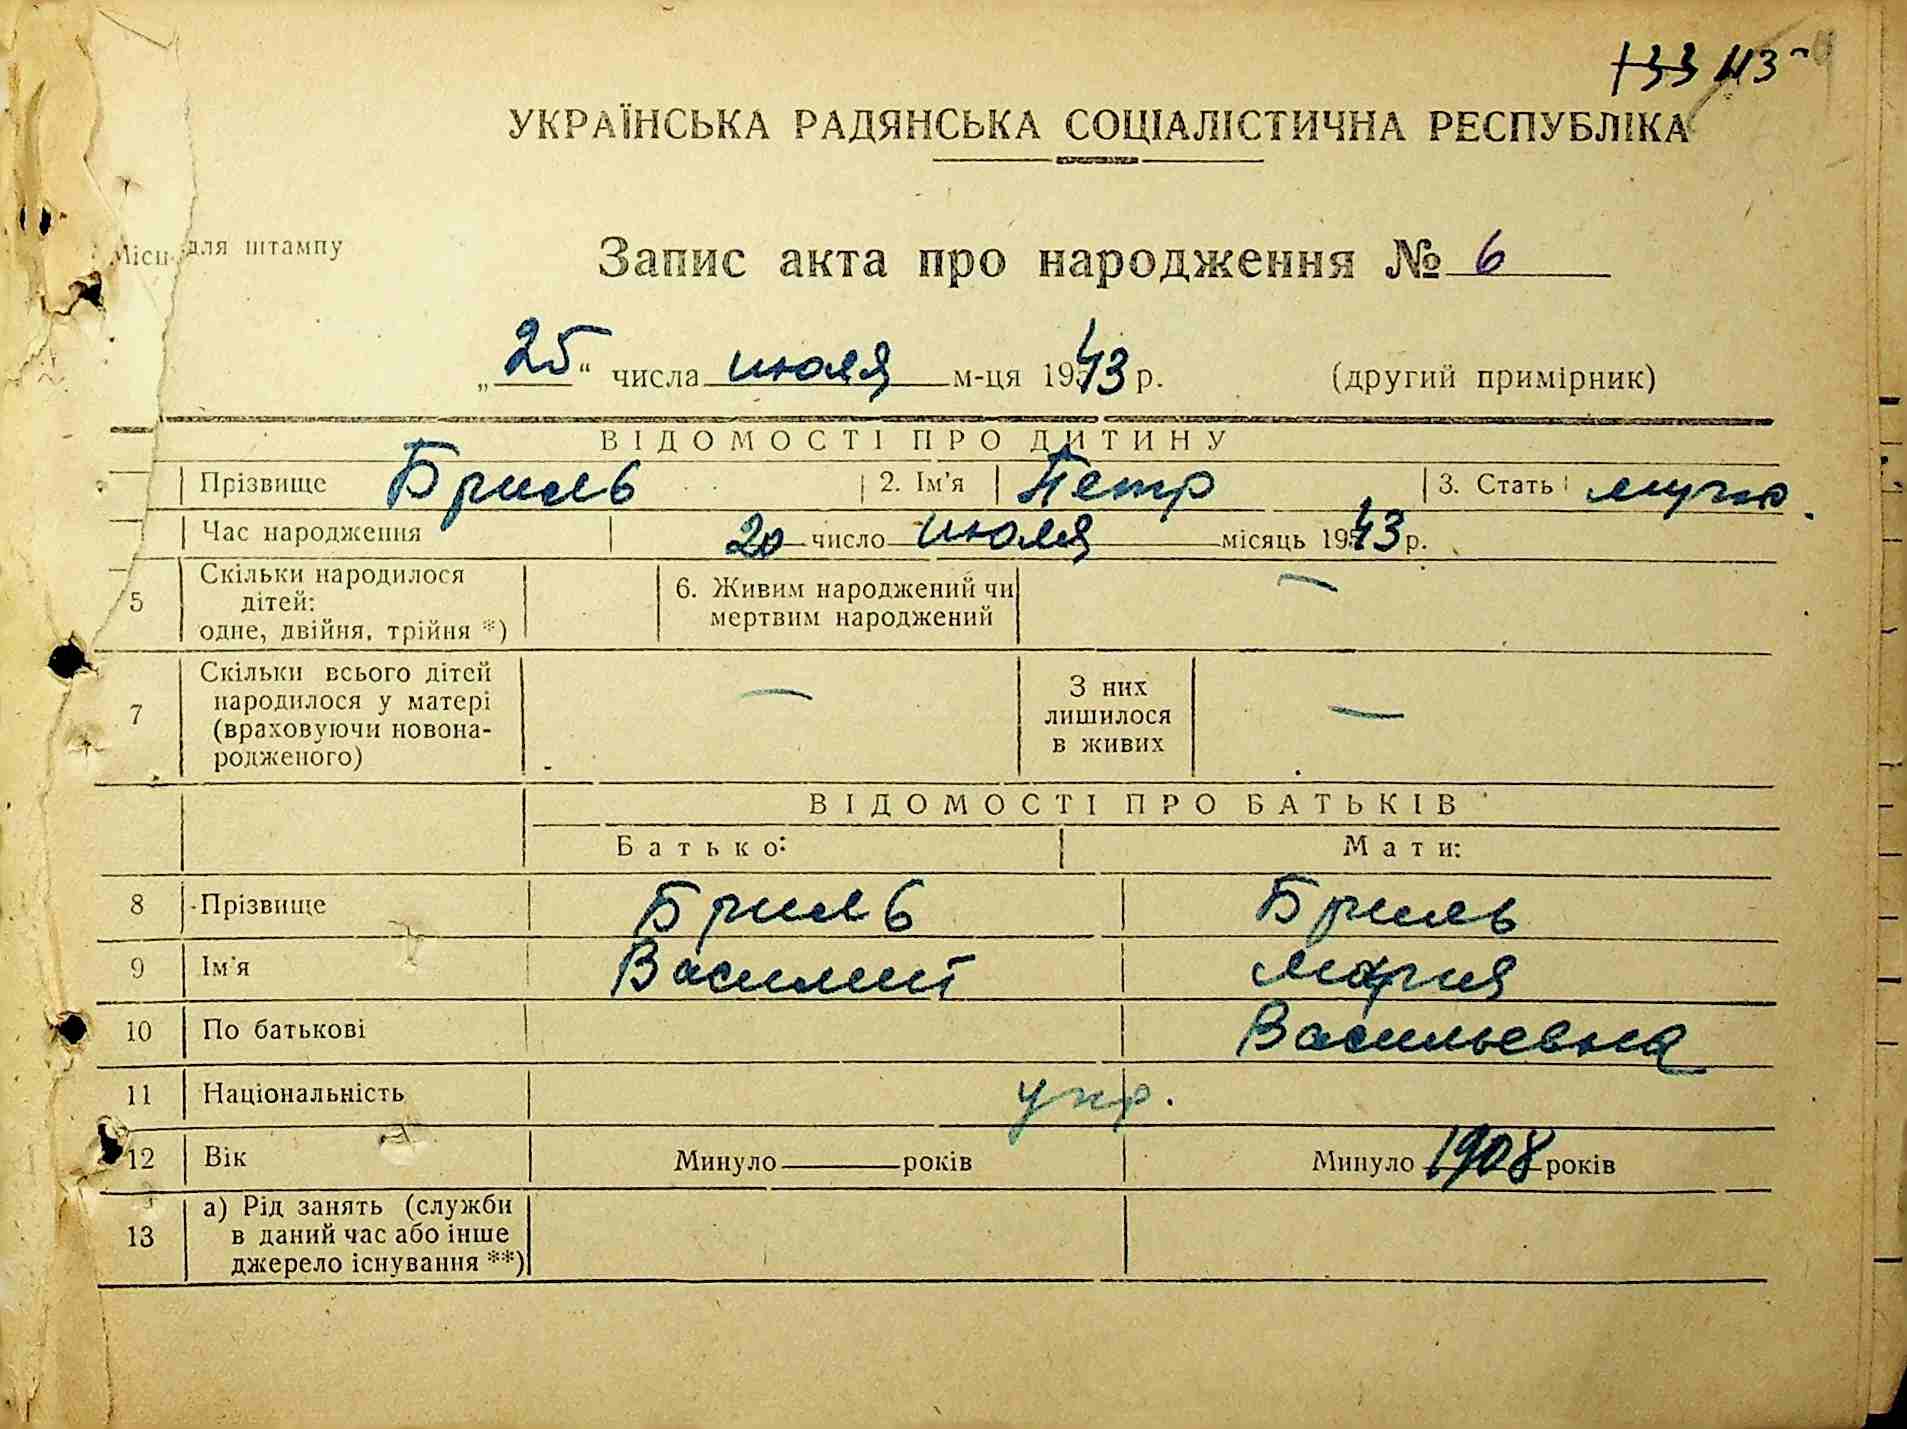 133 113
УКРАЇНСЬКА РАДЯНСЬКА СОЦІАЛІСТИЧНА РЕСПУБЛІКА
Місц для штампу
Запис акта про народження № 6
„25“ числа июля м-ця 1943 р. (другий примірник)
ВІДОМОСТІ ПРО ДИТИНУ
Прізвище Бриль 2. Ім'я Петр 3. Стать мужс.
Час народження 20 число июля місяць 1943 р.
5 Скільки народилося дітей: одне, двійня, трійня *) 6. Живим народжений чи мертвим народжений —
7 Скільки всього дітей народилося у матері (враховуючи новона-родженого) — З них лишилося в живих —
ВІДОМОСТІ ПРО БАТЬКІВ
Батько: Мати:
8 Прізвище Бриль Бриль
9 Ім'я Василий Мария
10 По батькові Васильевна
11 Національність укр.
12 Вік Минуло років Минуло 1908 років
13 а) Рід занять (служби в даний час або інше джерело існування **)